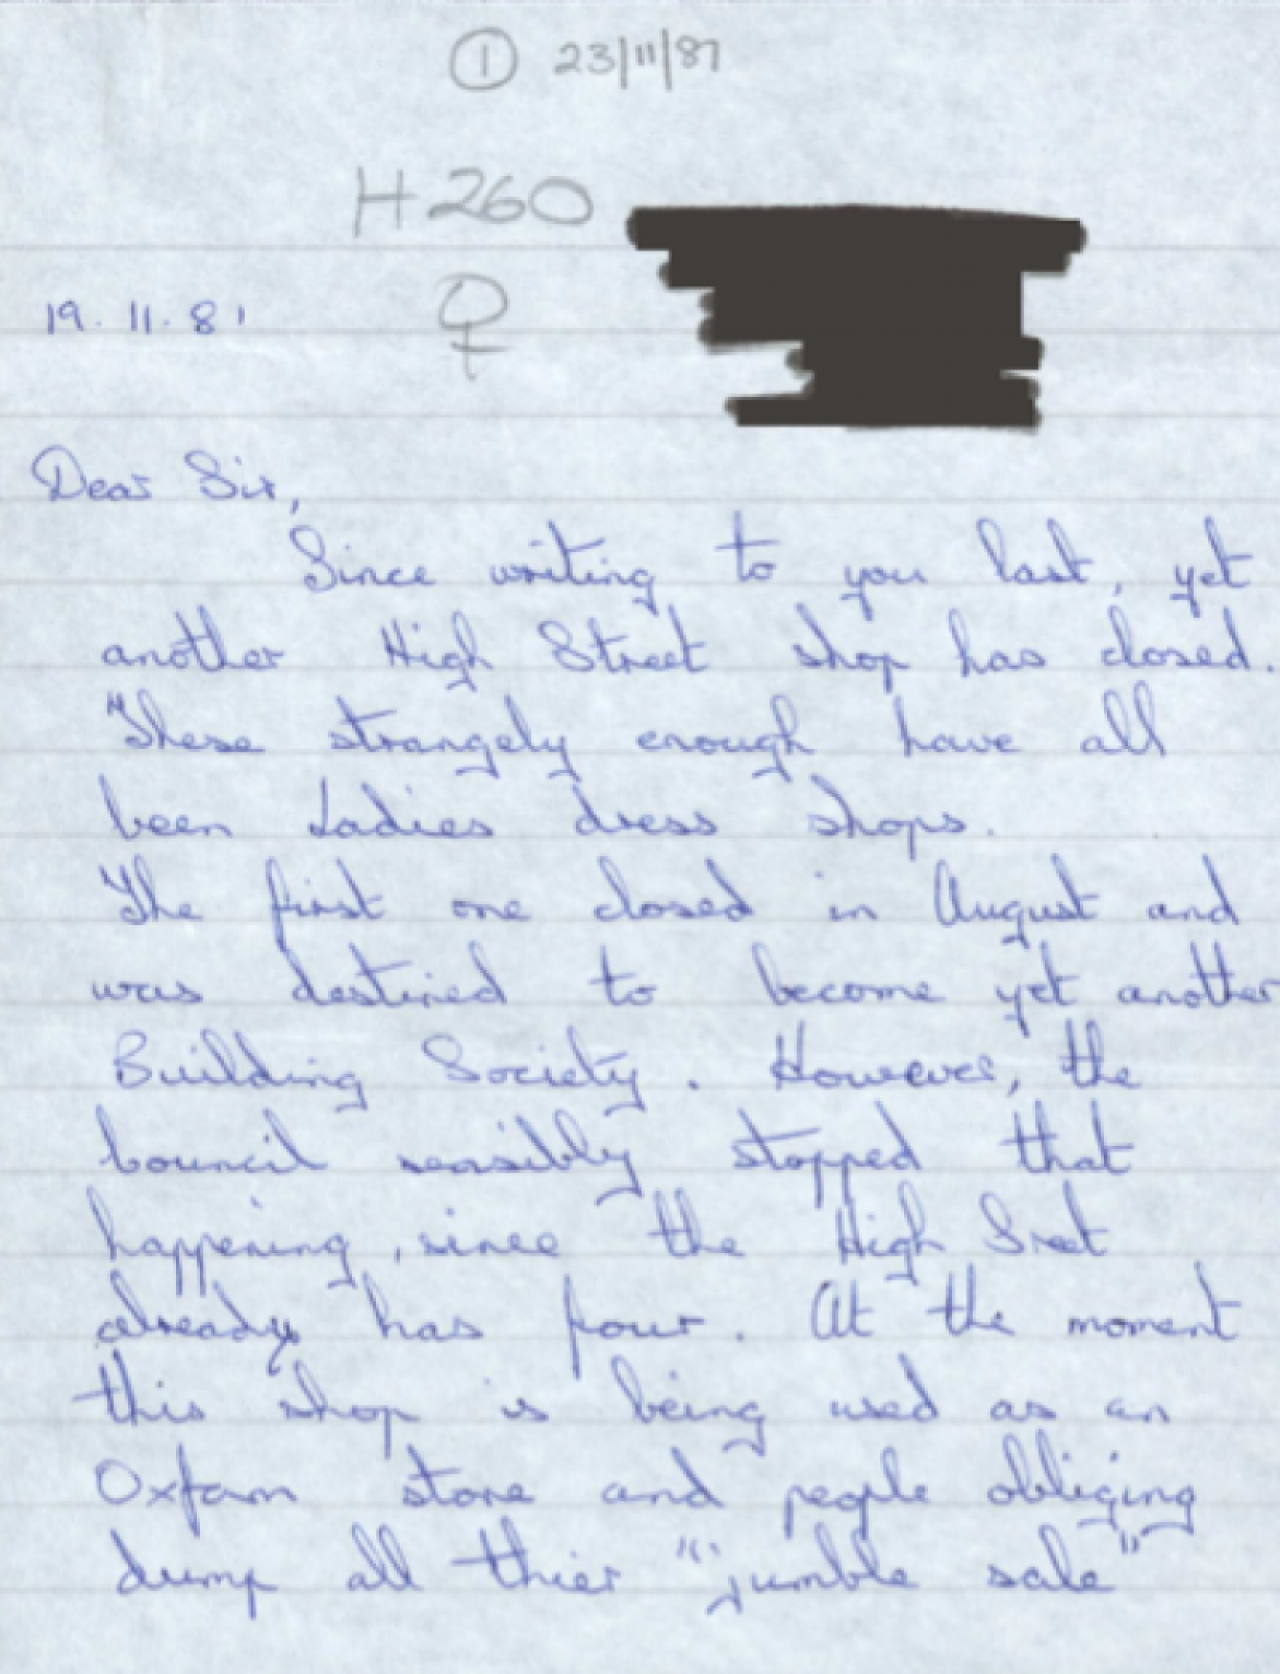 ① 23/11/81
H260
♀
19.11.81
Dear Sir,
Since writing to you last, yet
another High Street shop has closed.
These strangely enough have all
been Ladies dress shops.
The first one closed in August and
was destined to become yet another
Building Society. However, the
Council sensibly stopped that
happening, since the High Sreet
already has four. At the moment
this shop is being used as an
Oxfam store and people obliging
dump all thier "jumble sale"